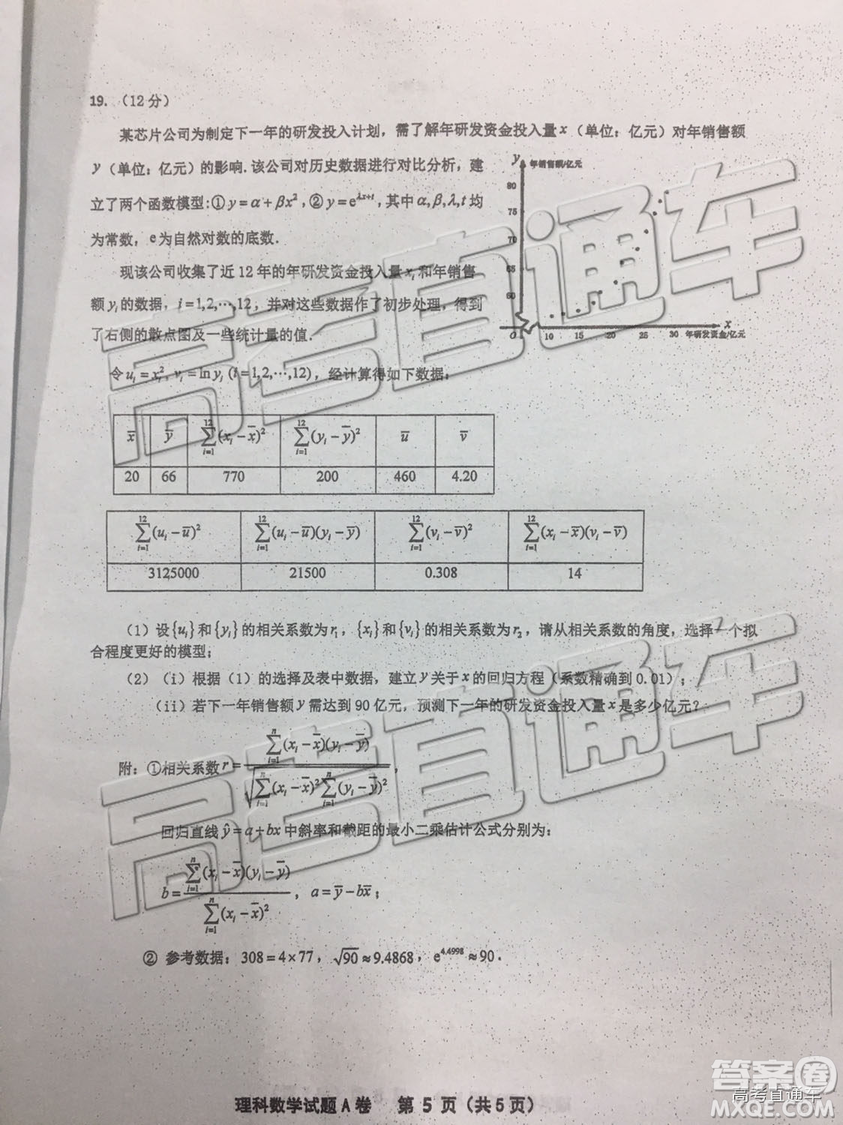 19. (12分)
某芯片公司为制定下一年的研发投入计划，需了解年研发资金投入量 x（单位：亿元）对年销售额
y（单位：亿元）的影响. 该公司对历史数据进行对比分析，建
立了两个函数模型:① y=α+βx²，② y=e^{λx+t}，其中 α,β,λ,t 均
为常数，e为自然对数的底数.
现该公司收集了近 12 年的年研发资金投入量 x_i 和年销售
额 y_i 的数据，i=1,2,⋯,12，并对这些数据作了初步处理，得到
了右侧的散点图及一些统计量的值.
y 年销售额/亿元
80
75
70
65
60
0 10 15 20 25 30 年研发资金/亿元
x
令 u_i=x_i², v_i=ln y_i (i=1,2,⋯,12)，经计算得如下数据：
x̄ ȳ ∑_{i=1}^{12}(x_i-x̄)² ∑_{i=1}^{12}(y_i-ȳ)² ū v̄
20 66 770 200 460 4.20
∑_{i=1}^{12}(u_i-ū)² ∑_{i=1}^{12}(u_i-ū)(y_i-ȳ) ∑_{i=1}^{12}(v_i-v̄)² ∑_{i=1}^{12}(x_i-x̄)(v_i-v̄)
3125000 21500 0.308 14
（1）设{u_i}和{y_i}的相关系数为 r₁，{x_i}和{v_i}的相关系数为 r₂，请从相关系数的角度，选择一个拟
合程度更好的模型；
（2）（i）根据（1）的选择及表中数据，建立 y 关于 x 的回归方程（系数精确到 0.01）；
（ii）若下一年销售额 y 需达到 90 亿元，预测下一年的研发资金投入量 x 是多少亿元？
附：①相关系数 r=∑_{i=1}^{n}(x_i-x̄)(y_i-ȳ)/√(∑_{i=1}^{n}(x_i-x̄)²∑_{i=1}^{n}(y_i-ȳ)²)，
回归直线 ŷ=a+bx 中斜率和截距的最小二乘估计公式分别为：
b=∑_{i=1}^{n}(x_i-x̄)(y_i-ȳ)/∑_{i=1}^{n}(x_i-x̄)²，a=ȳ-bx̄；
② 参考数据：308=4×77，√90≈9.4868，e^{4.4998}≈90．
理科数学试题A卷 第 5 页（共5页）
高考直通车
高考直通车
答案圈
高考直通车
MXQE.COM